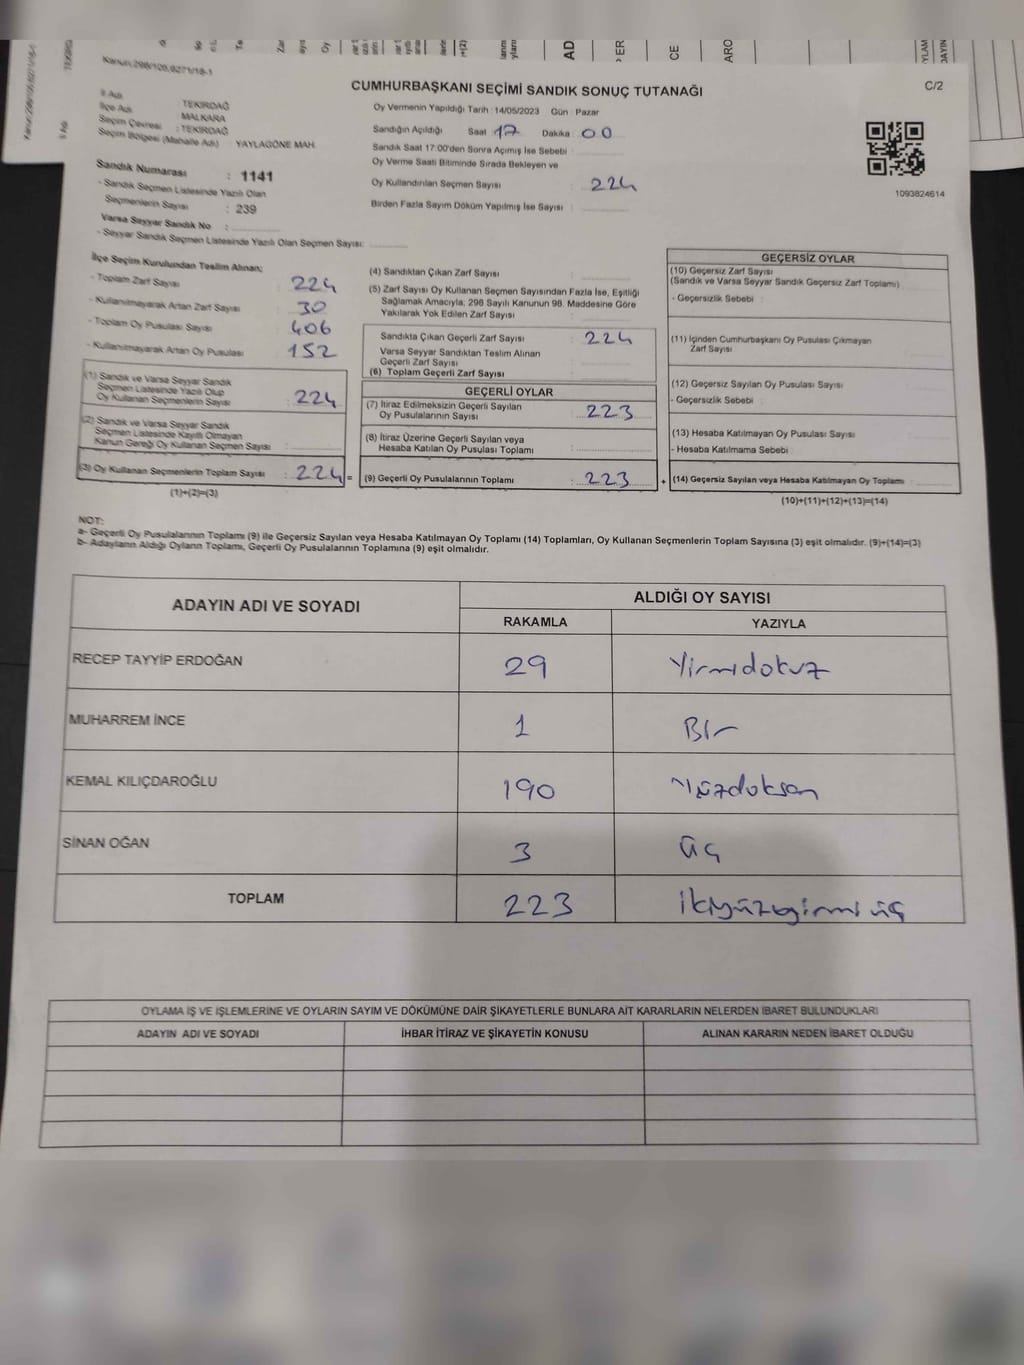 Kanun:298/109,6271/18-1
CUMHURBAŞKANI SEÇİMİ SANDIK SONUÇ TUTANAĞI
C/2
İl Adı : TEKİRDAĞ
İlçe Adı : MALKARA
Seçim Çevresi : TEKİRDAĞ
Seçim Bölgesi (Mahalle Adı) : YAYLAGÖNE MAH.
Sandık Numarası : 1141
- Sandık Seçmen Listesinde Yazılı Olan
Seçmenlerin Sayısı : 239
Varsa Seyyar Sandık No :
- Seyyar Sandık Seçmen Listesinde Yazılı Olan Seçmen Sayısı:
Oy Vermenin Yapıldığı Tarih : 14/05/2023 Gün : Pazar
Sandığın Açıldığı Saat 17 Dakika : 00
Sandık Saat 17:00'den Sonra Açımış İse Sebebi :
Oy Verme Saati Bitiminde Sırada Bekleyen ve
Oy Kullandırılan Seçmen Sayısı : 224
Birden Fazla Sayım Döküm Yapılmış İse Sayısı :
1093824614
İlçe Seçim Kurulundan Teslim Alınan;
- Toplam Zarf Sayısı : 224
- Kullanılmayarak Artan Zarf Sayısı : 30
- Toplam Oy Pusulası Sayısı : 406
- Kullanılmayarak Artan Oy Pusulası : 152
(1) Sandık ve Varsa Seyyar Sandık
Seçmen Listesinde Yazılı Olup
Oy Kullanan Seçmenlerin Sayısı : 224
(2) Sandık ve Varsa Seyyar Sandık
Seçmen Listesinde Kayıtlı Olmayan
Kanun Gereği Oy Kullanan Seçmen Sayısı :
(3) Oy Kullanan Seçmenlerin Toplam Sayısı : 224 =
(1)+(2)=(3)
(4) Sandıktan Çıkan Zarf Sayısı :
(5) Zarf Sayısı Oy Kullanan Seçmen Sayısından Fazla İse, Eşitliği
Sağlamak Amacıyla; 298 Sayılı Kanunun 98. Maddesine Göre
Yakılarak Yok Edilen Zarf Sayısı :
Sandıkta Çıkan Geçerli Zarf Sayısı : 224
Varsa Seyyar Sandıktan Teslim Alınan
Geçerli Zarf Sayısı :
(6) Toplam Geçerli Zarf Sayısı :
GEÇERLİ OYLAR
(7) İtiraz Edilmeksizin Geçerli Sayılan
Oy Pusulalarının Sayısı : 223
(8) İtiraz Üzerine Geçerli Sayılan veya
Hesaba Katılan Oy Pusulası Toplamı :
(9) Geçerli Oy Pusulalarının Toplamı : 223 +
GEÇERSİZ OYLAR
(10) Geçersiz Zarf Sayısı :
(Sandık ve Varsa Seyyar Sandık Geçersiz Zarf Toplamı)
- Geçersizlik Sebebi :
(11) İçinden Cumhurbaşkanı Oy Pusulası Çıkmayan
Zarf Sayısı :
(12) Geçersiz Sayılan Oy Pusulası Sayısı :
- Geçersizlik Sebebi :
(13) Hesaba Katılmayan Oy Pusulası Sayısı :
- Hesaba Katılmama Sebebi :
(14) Geçersiz Sayılan veya Hesaba Katılmayan Oy Toplamı :
(10)+(11)+(12)+(13)=(14)
NOT:
a- Geçerli Oy Pusulalarının Toplamı (9) ile Geçersiz Sayılan veya Hesaba Katılmayan Oy Toplamı (14) Toplamları, Oy Kullanan Seçmenlerin Toplam Sayısına (3) eşit olmalıdır. (9)+(14)=(3)
b- Adayların Aldığı Oyların Toplamı, Geçerli Oy Pusulalarının Toplamına (9) eşit olmalıdır.
ADAYIN ADI VE SOYADI ALDIĞI OY SAYISI
RAKAMLA YAZIYLA
RECEP TAYYİP ERDOĞAN 29 Yirmidokuz
MUHARREM İNCE 1 Bir
KEMAL KILIÇDAROĞLU 190 Yüzdoksan
SİNAN OĞAN 3 üç
TOPLAM 223 ikiyüzyirmi üç
OYLAMA İŞ VE İŞLEMLERİNE VE OYLARIN SAYIM VE DÖKÜMÜNE DAİR ŞİKAYETLERLE BUNLARA AİT KARARLARIN NELERDEN İBARET BULUNDUKLARI
ADAYIN ADI VE SOYADI İHBAR İTİRAZ VE ŞİKAYETİN KONUSU ALINAN KARARIN NEDEN İBARET OLDUĞU